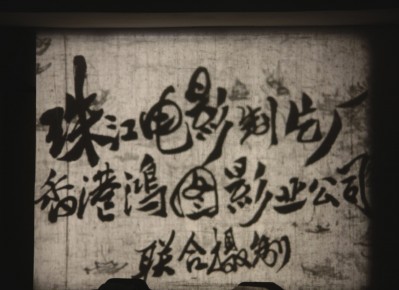 珠江电影制片厂
香港鸿图影业公司
联合摄制